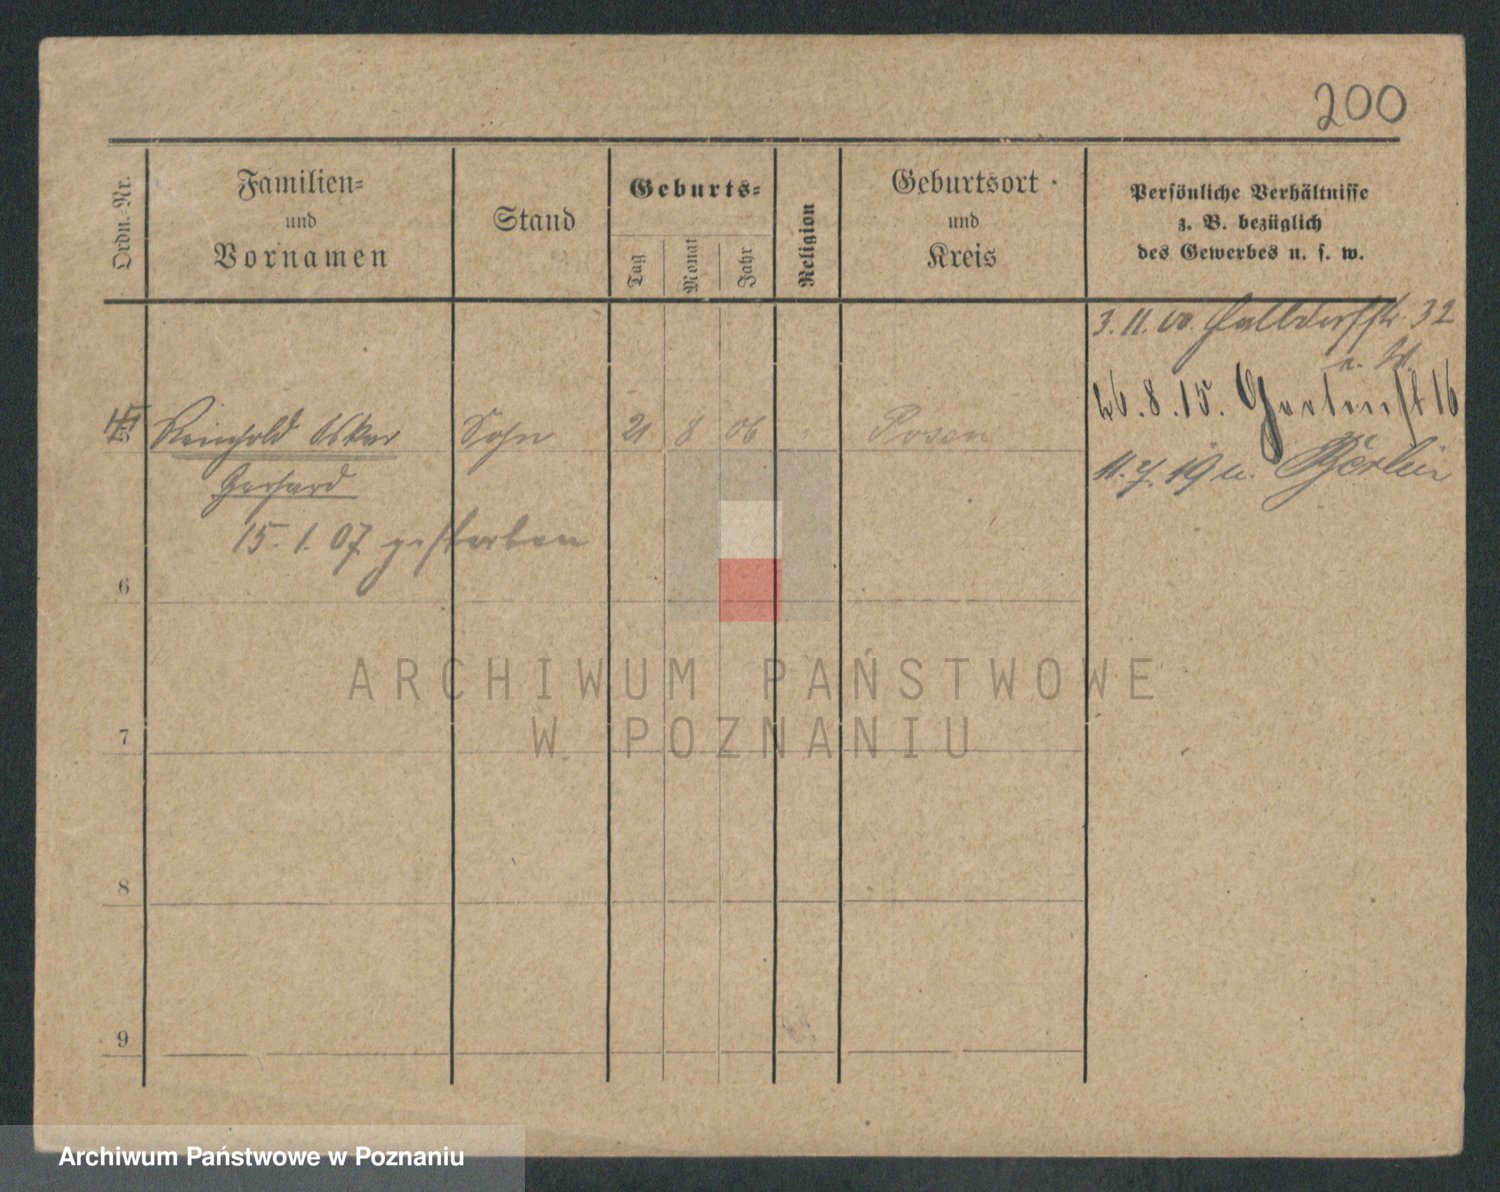 200
Ordn.-Nr.
Familien-
und
Vornamen
Stand
Geburts-
Tag
Monat
Jahr
Religion
Geburtsort
und
Kreis
Persönliche Verhältnisse
z. B. bezüglich
des Gewerbes u. s. w.
3. 11. 00. 32
26. 8. 15. Gartenst 16
11. 7. 19 n. Berlin
5 Reinhold Oskar Sohn 21 8 06 Posen
Gerhard
15. 1. 07 gestorben
6
7
8
9
ARCHIWUM PAŃSTWOWE
W POZNANIU
Archiwum Państwowe w Poznaniu